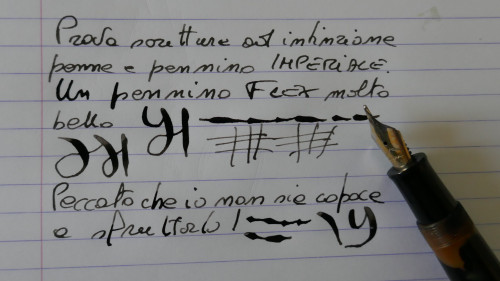 Prova scritture ad intinzione
penne e pennino IMPERIALE.
Un pennino FLEX molto
bello
Peccato che io non sie capace
e sfruttarlo!